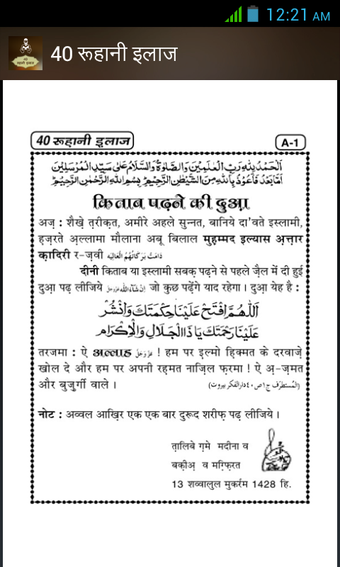 12:21 AM
40 रूहानी इलाज
40 रूहानी इलाज
A-1
اَلْحَمْدُ لِلّٰهِ رَبِّ الْعٰلَمِيْنَ وَالصَّلٰوةُ وَالسَّلَامُ عَلٰى سَيِّدِ الْمُرْسَلِيْنَ
اَمَّا بَعْدُ فَاَعُوْذُ بِاللّٰهِ مِنَ الشَّيْطٰنِ الرَّجِيْمِ ۚ بِسْمِ اللّٰهِ الرَّحْمٰنِ الرَّحِيْمِ ؕ
किताब पढ़ने की दुआ
अज़् : शैख़े त़रीक़त, अमीरे अहले सुन्नत, बानिये दा'वते इस्लामी,
ह़ज़रते अ़ल्लामा मौलाना अबू बिलाल मुह़म्मद इल्यास अ़त्त़ार
क़ादिरी र-ज़वी دَامَتْ بَرَكَاتُهُمُ الْعَالِيَه
दीनी किताब या इस्लामी सबक़ पढ़ने से पहले ज़ैल में दी हुई
दुआ पढ़ लीजिये اِنْ شَآءَ اللّٰه عَزَّوَجَلَّ जो कुछ पढ़ेंगे याद रहेगा । दुआ येह है :
اَللّٰهُمَّ افْتَحْ عَلَيْنَا حِكْمَتَكَ وَانْشُرْ
عَلَيْنَا رَحْمَتَكَ يَا ذَا الْجَلَالِ وَالْاِكْرَام
तरजमा : ऐ अल्लाह عَزَّوَجَلَّ ! हम पर इल्मो ह़िक्मत के दरवाज़े
खोल दे और हम पर अपनी रह़मत नाज़िल फ़रमा ! ऐ अ़-ज़मत
और बुज़ुर्गी वाले । (اَلْمُسْتَطْرَف ج١ ص٤٠ دارالفكر بيروت)
नोट : अव्वल आख़िर एक एक बार दुरूद शरीफ़ पढ़ लीजिये ।
त़ालिबे ग़मे मदीना व
बक़ीअ़ व मग़्फ़िरत
13 शव्वालुल मुकर्रम 1428 हि.